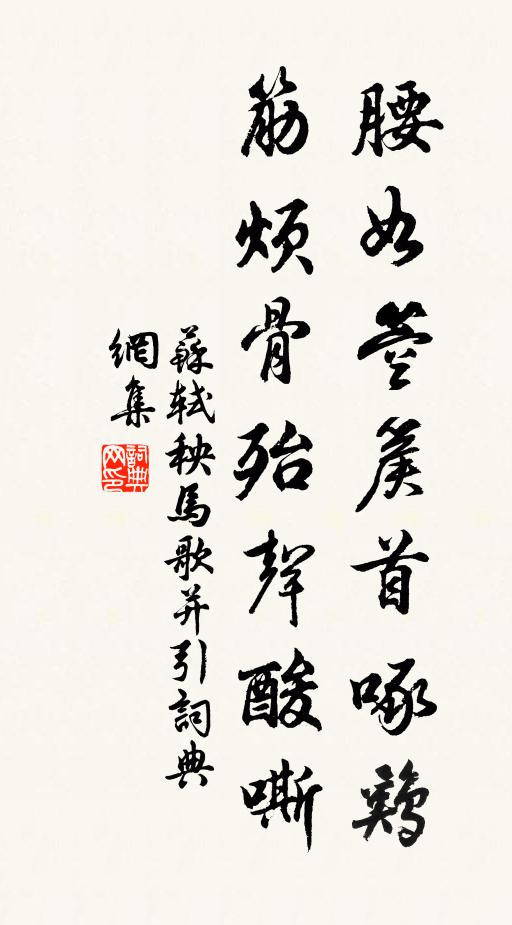 腰如箜篌首啄鷄
筋煩骨殆聲酸嘶
蘇軾秧馬歌并引詞典
網集
詞典
网印